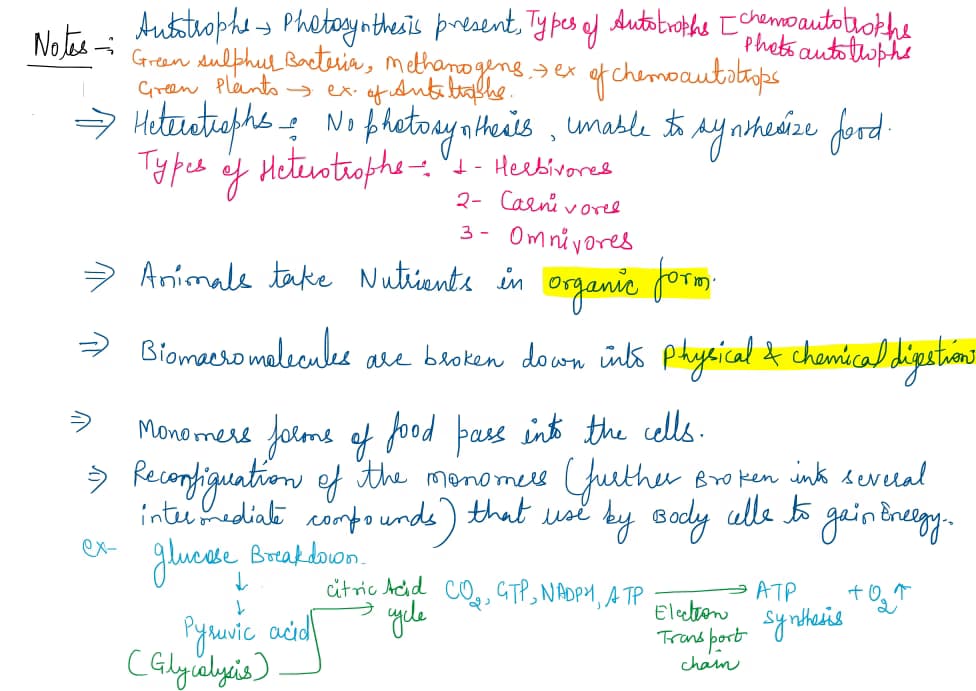 Notes -: Autotrophs → Photosynthesis present, Types of Autotrophs [ chemoautotrophs
Photoautotrophs
Green sulphur Bacteria, methanogens, → ex of chemoautotrops
Green Plants → ex. of Autotrophs.
⇒ Heterotrophs -: No photosynthesis, unable to synthesize food.
Types of Heterotrophs -: 1 - Herbivores
2 - Carnivores
3 - Omnivores
⇒ Animals take Nutrients in organic form.
⇒ Biomacromolecules are broken down into physical & chemical digestion
⇒ Monomers forms of food pass into the cells.
⇒ Reconfiguration of the monomers (further Broken into several
intermediate compounds) that use by Body cells to gain Energy..
ex- glucose Breakdown.
↓
↓
Pyruvic acid
(Glycolysis)
citric Acid
cycle
CO2, GTP, NADPH, ATP
Electron
Transport
chain
ATP
synthesis
+ O2 ↑